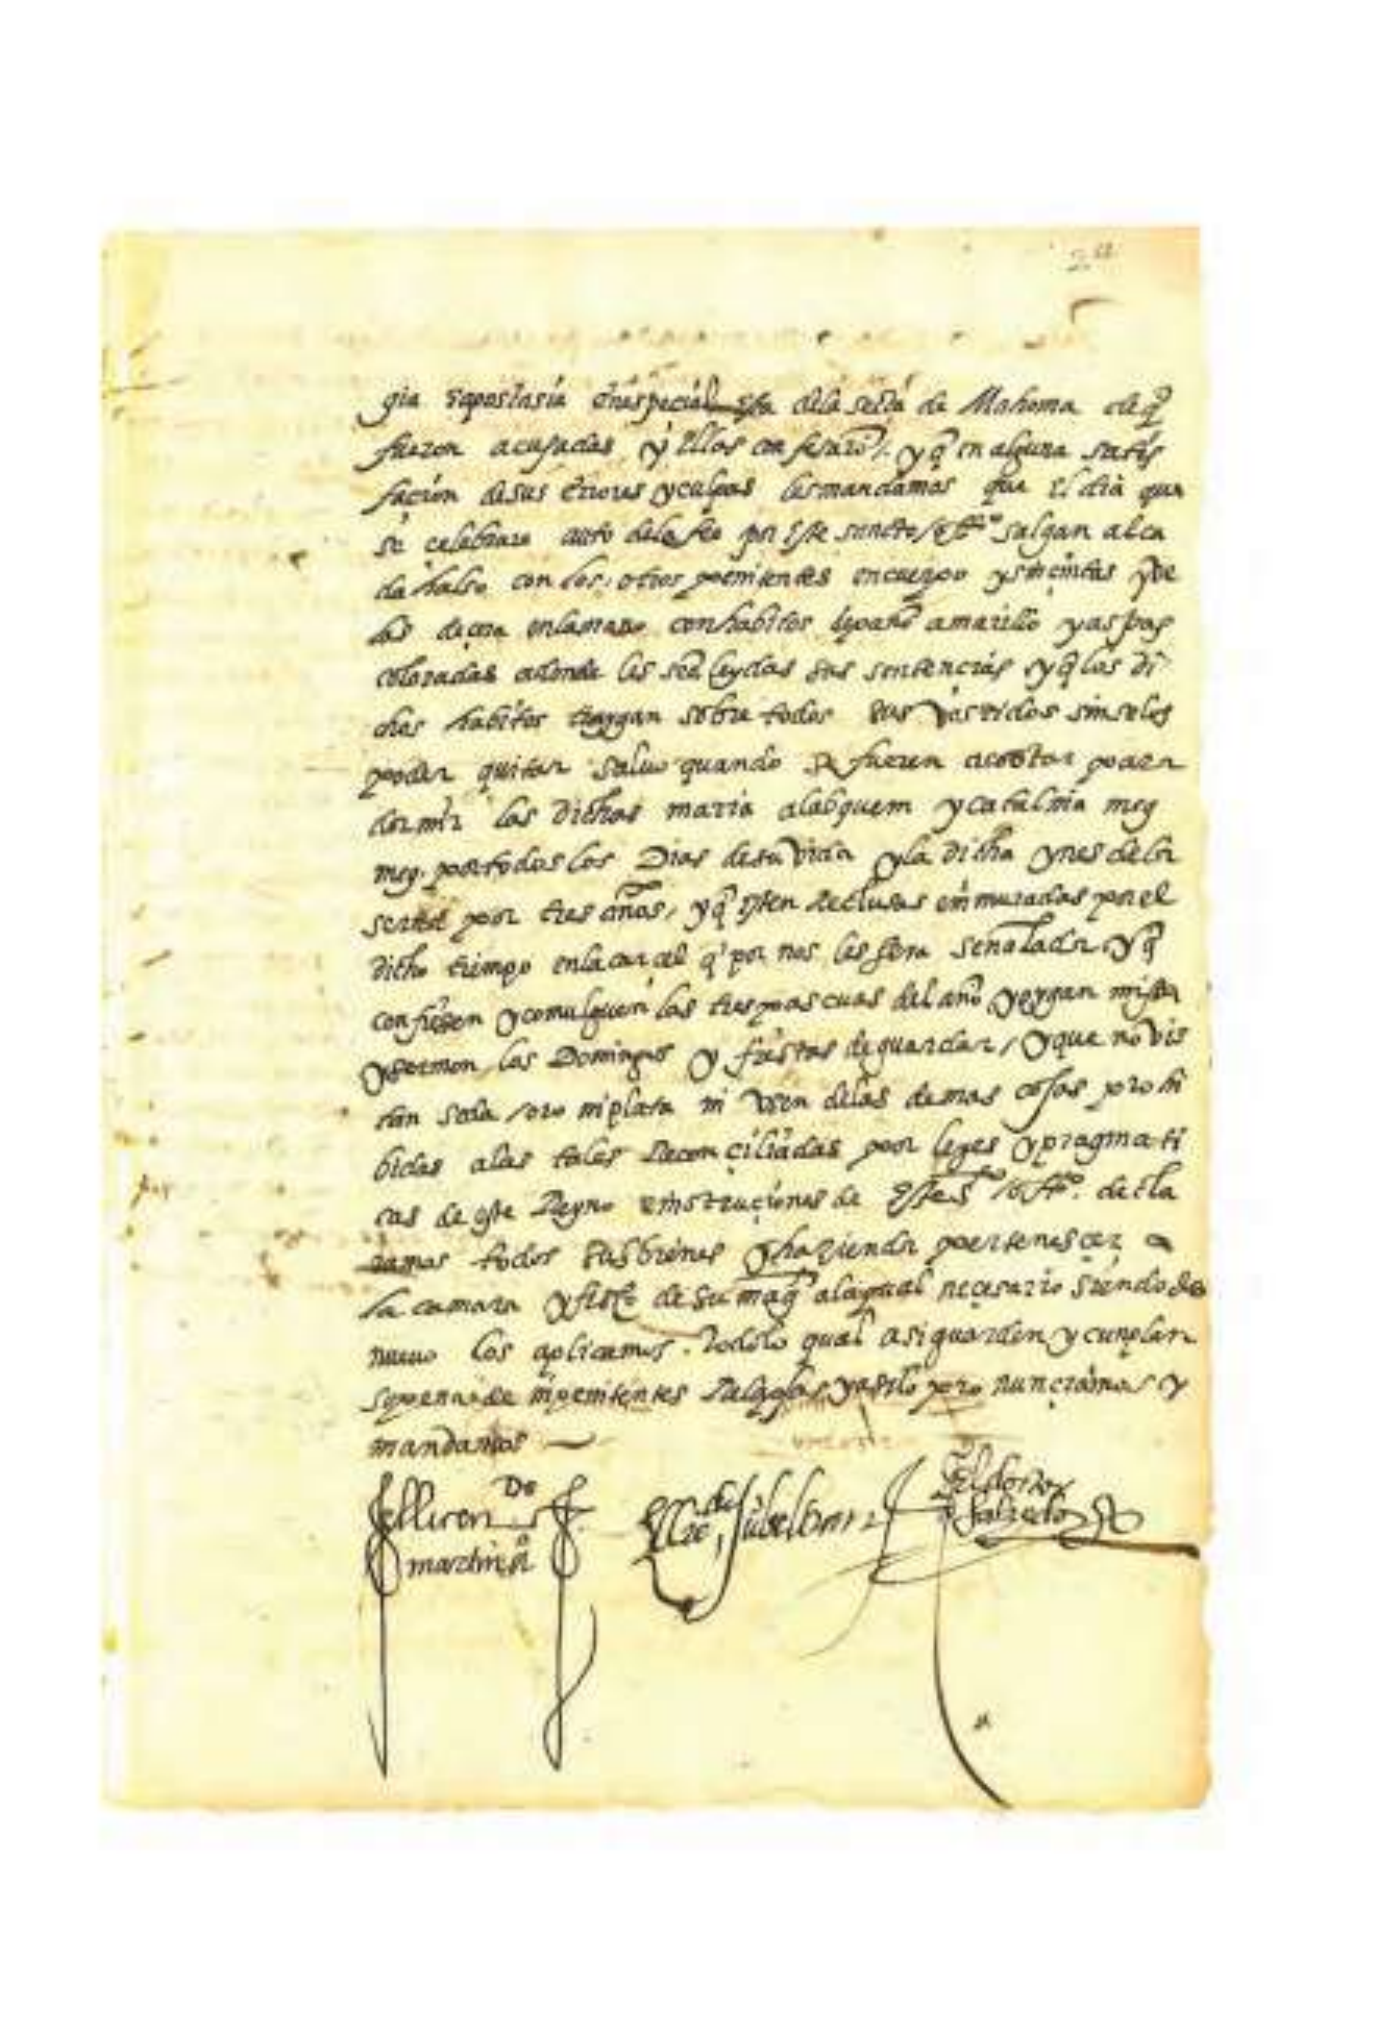 2
gia Eapostasia En especial la de la secta de Mahoma de q̃
fueron acusadas y Ellas confesarõ, y q̃ en alguna satis
facion de sus Errores y culpas les mandamos que El dia que
se celebrare auto de la fee por Este sancto off.º salgan al ca
dahalso con los otros penitentes en cuerpo y sin çintas y ve
las de çera en las manos con habitos de paño amarillo y aspas
coloradas adonde les seã leydas sus sentencias y q̃ los di
chos habitos traygan sobre todos sus vestidos sin selos
poder quitar salvo quando se fueren acostar para
dormir las dichas maria alabquem y catalina meg
meg. por todos los Dias de su vida y la dicha ynes de la
serna por tres años, y q̃ Esten reclusas emmuradas por el
dicho tiempo en la carcel q̃ por nos les sera señalada, y q̃
confiesen y comulguen las tres pascuas del año y oygan missa
y sermon los Domingos y fiestas de guardar, y que no vis
tan seda oro ni plata ni vsen de las demas cosas prohi
bidas a las tales Reconçiliadas por leyes y pragmati
cas de este Reyno e instruçiones de Este S.to off.º. decla
ramos todos sus bienes y hazienda pertenesçer a
la camara y fisco de su mag.d a la qual neçesario siendo de
nuevo los aplicamos. Todo lo qual asi guarden y cunplan
so pena de inpenitentes Relapsas y asi lo pronunçiamos y
mandamos
El licen.do
martin
El L.do de Jubelban
El doctor
Salzedo